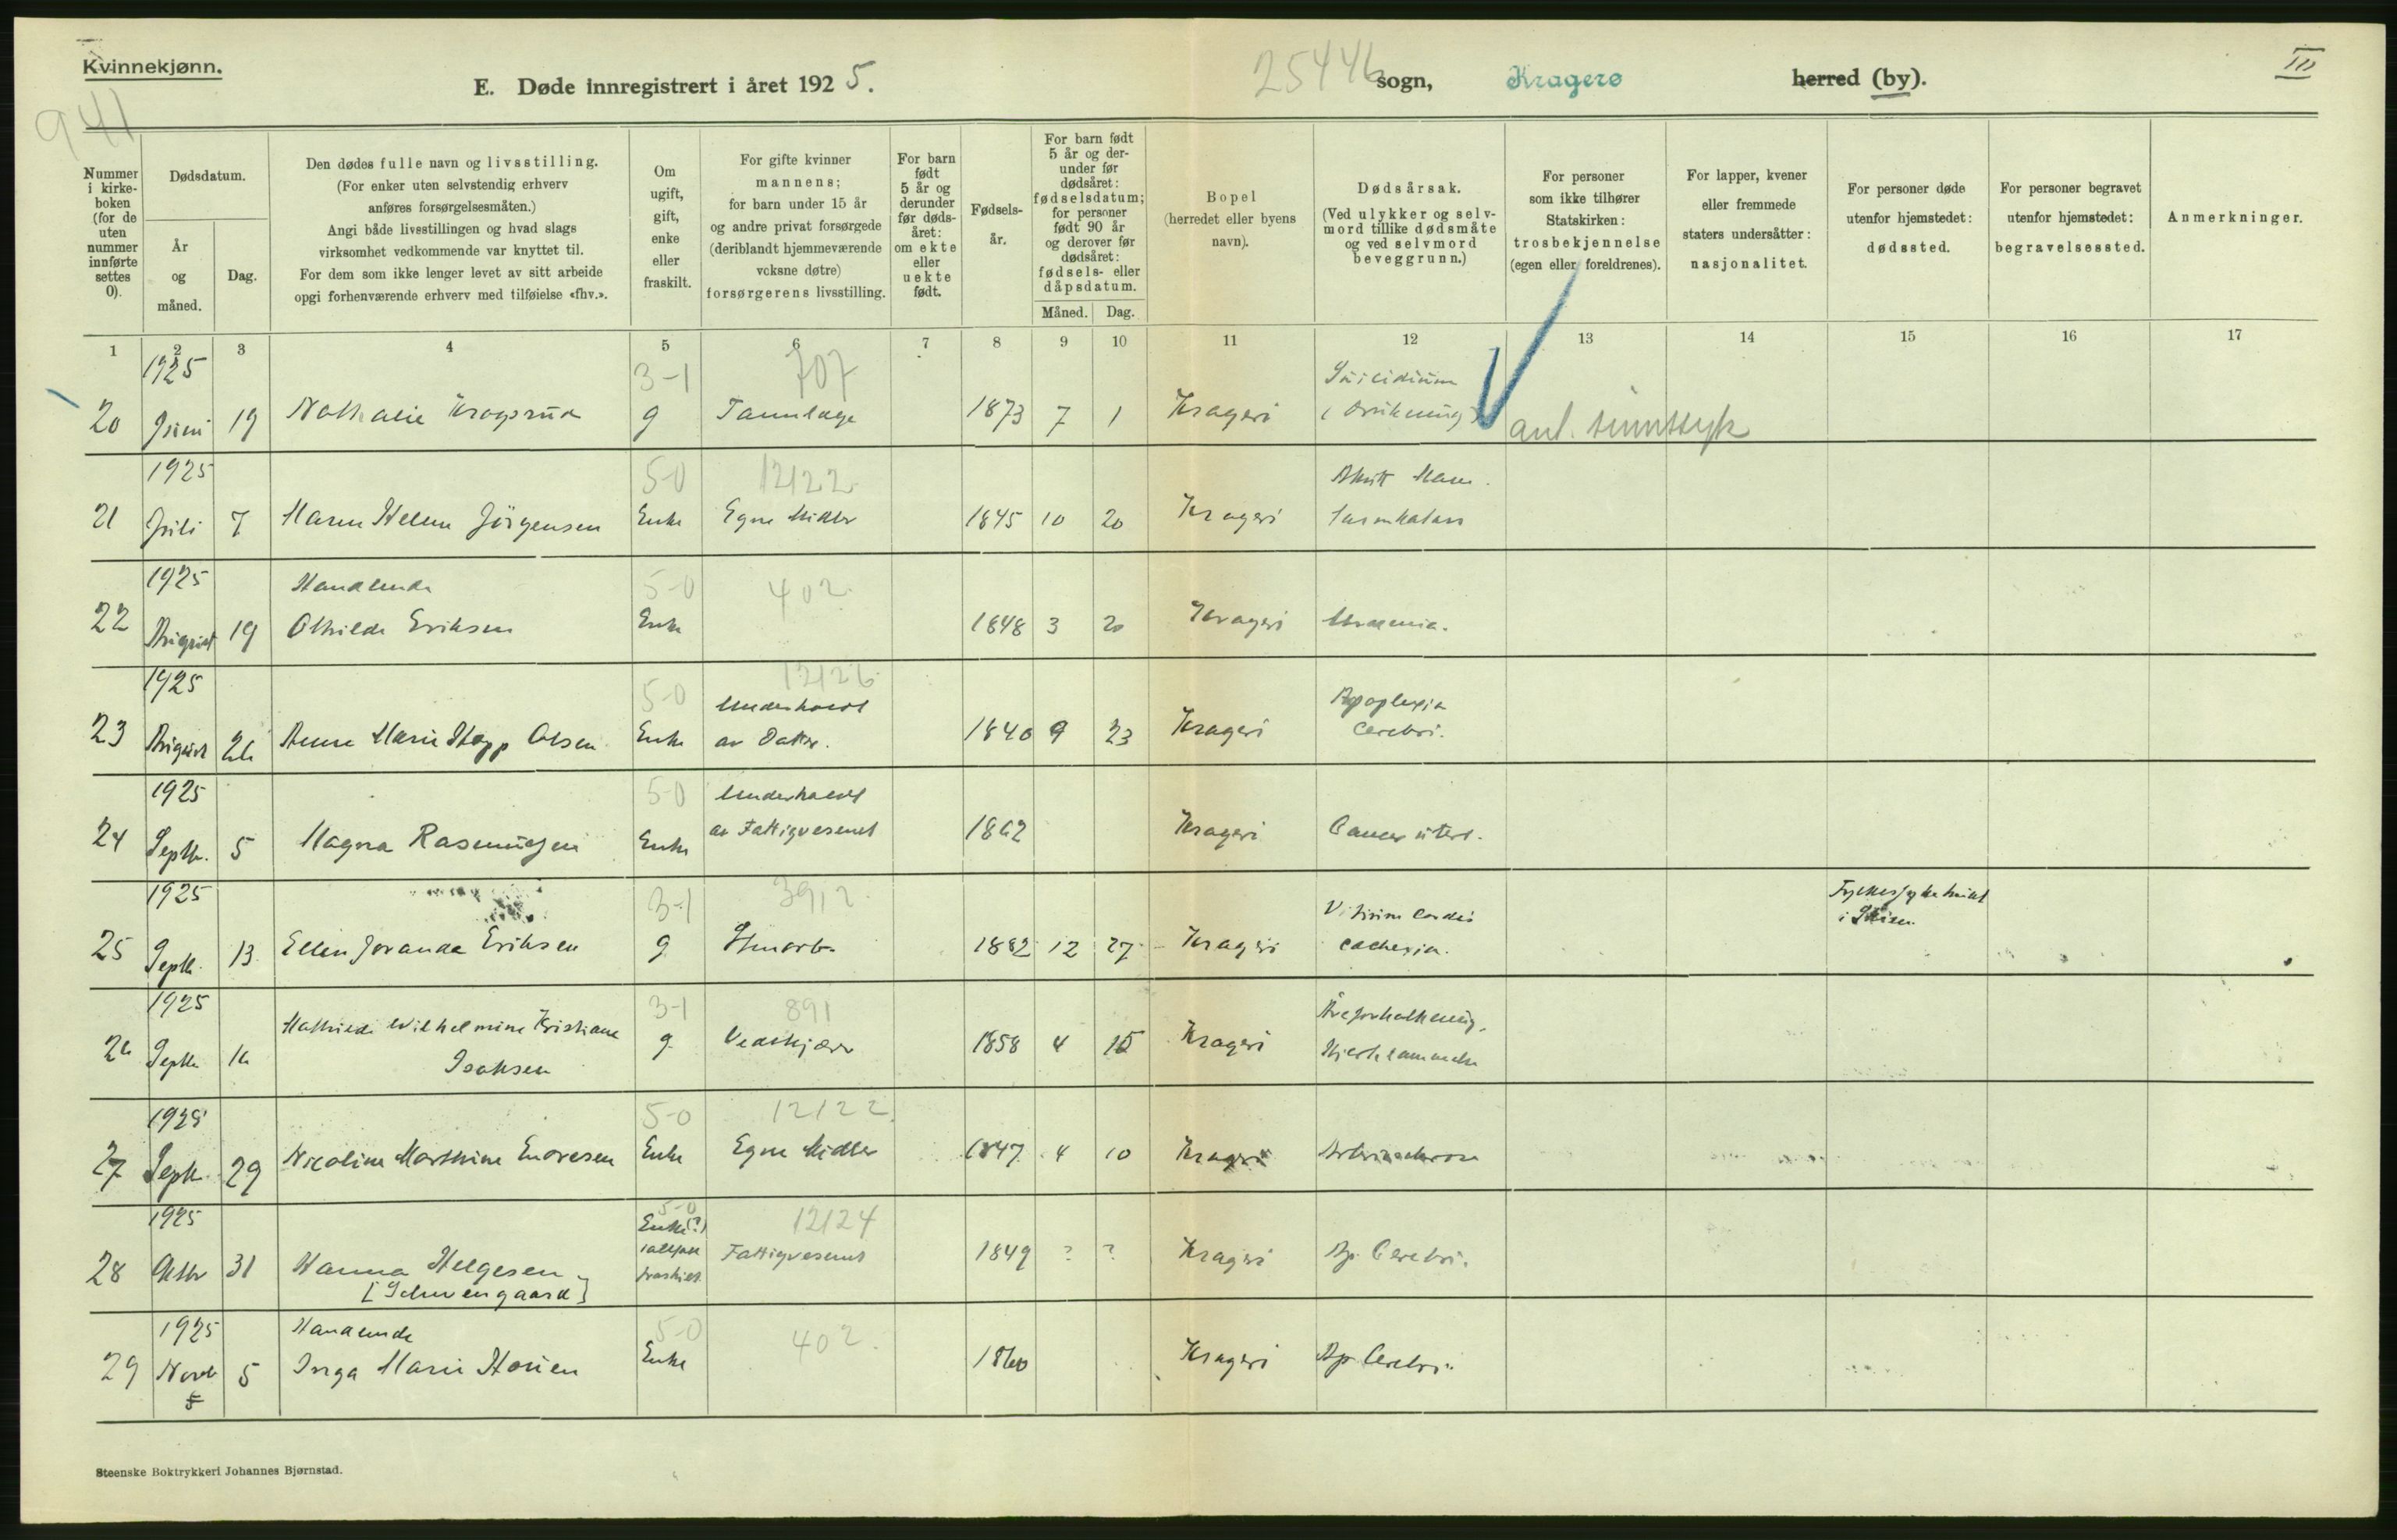 Kvinnekjønn.
E. Døde innregistrert i året 1925.
25446 sogn, Kragerø herred (by).
III
941
Nummer i kirkeboken (for de uten nummer innførte settes 0).
Dødsdatum.
År og måned.
Dag.
Den dødes fulle navn og livsstilling.
(For enker uten selvstendig erhverv
anføres forsørgelsesmåten.)
Angi både livsstillingen og hvad slags
virksomhet vedkommende var knyttet til.
For dem som ikke lenger levet av sitt arbeide
opgi forhenværende erhverv med tilføielse «fhv.».
Om ugift, gift, enke eller fraskilt.
For gifte kvinner
mannens;
for barn under 15 år
og andre privat forsørgede
(deriblandt hjemmeværende
voksne døtre)
forsørgerens livsstilling.
For barn født 5 år og derunder før dødsåret: om ekte eller uekte født.
Fødselsår.
For barn født 5 år og derunder før dødsåret: fødselsdatum; for personer født 90 år og derover før dødsåret: fødsels- eller dåpsdatum.
Måned. Dag.
Bopel
(herredet eller byens
navn).
Dødsårsak.
(Ved ulykker og selvmord tillike dødsmåte og ved selvmord beveggrunn.)
For personer
som ikke tilhører
Statskirken:
trosbekjennelse
(egen eller foreldrenes).
For lapper, kvener
eller fremmede
staters undersåtter:
nasjonalitet.
For personer døde
utenfor hjemstedet:
dødssted.
For personer begravet
utenfor hjemstedet:
begravelsessted.
Anmerkninger.
1 2 3 4 5 6 7 8 9 10 11 12 13 14 15 16 17
1925 3-1 707 Suicidium
20 Juni 19 Nathalie Kragsrud g Tannlæge 1873 7 1 Kragerø (drukning) ant. sinnssyk
1925 5-0 12122 Akutt Mave
21 Juli 7 Maren Helene Jörgensen Enke Egne Midler 1845 10 20 Kragerø tarmkatarr
1925 Handlende 5-0 402
22 August 19 Othilde Eriksen Enke 1848 3 20 Kragerø Uraemia.
1925 5-0 12126 Underholdt Apoplexia
23 August 26 Anne Marie Olsen Enke av Datter. 1840 9 23 Kragerø Cerebri.
1925 5-0 Underholdt
24 Septb. 5 Magna Rasmussen Enke av Fattigvesenet 1862 Kragerø Cancer uteri.
1925 3-1 3912 Vitium Cordis Fylkessykehuset
25 Septb. 13 Ellen Jovanda Eriksen g 1882 12 27 Kragerø Cachexia. i Skien
1925 Mathilde Wilhelmine Kristiane 3-1 891 Åreforkalkning.
26 Septb. 16 Isaksen g. 1858 4 15 Kragerø Hjertelammelse
1925 5-0 12122
27 Septb. 29 Nicoline Marthine Endresen Enke Egne Midler 1847 4 10 Kragerø
1925 5-0 Enke(?) 12124
28 Oktbr 31 Hanna Helgesen iallfall fraskilt Fattigvesenet 1849 ? ? Kragerø Ap. Cerebri.
1925 Handlende 5-0 402
29 Novb 5 Inga Marie Enke 1860 Kragerø Ap. Cerebri.
5
Steenske Boktrykkeri Johannes Bjørnstad.